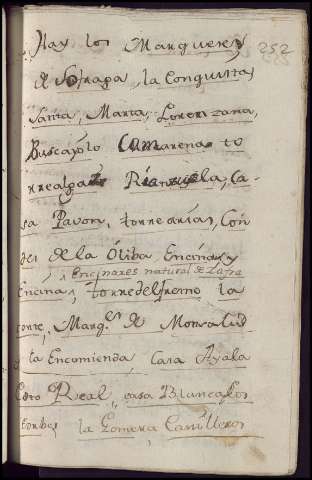 Hay los Marqueses 252
de Sofraga, la Conquista,
Santa, Marta, Lorenzana,
Buscayolo Camarena to
rrealgaz Rianzuela, Ca-
sa Pavon, torre arias, Con
des de la Oliba, Encinas y
y Encinares natural de Zafra
Encina, torre del fresno la
torre, Marqs. de Monsalud
la Encomienda Casa Ayala
Coto Real, casa Blanca los
la Gomera Canilleros